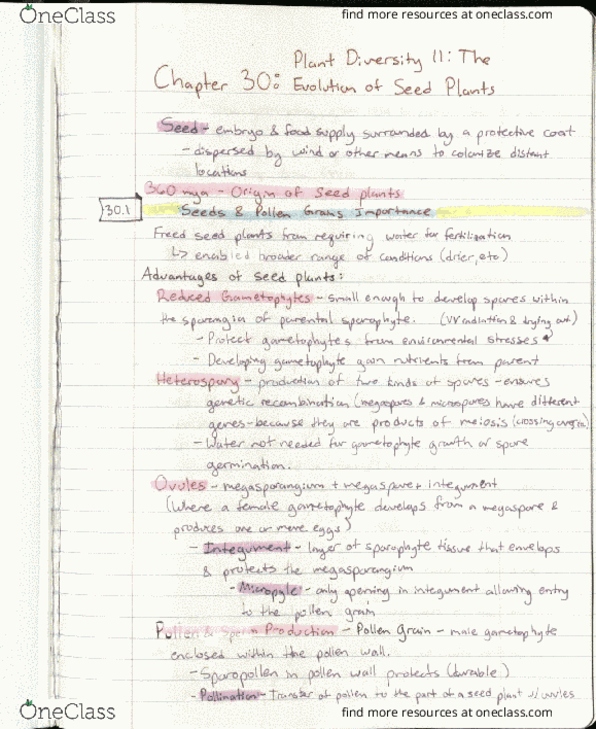 OneClass
find more resources at oneclass.com
Plant Diversity II: The
Chapter 30: Evolution of Seed Plants
Seed - embryo & food supply surrounded by a protective coat
- dispersed by wind or other means to colonize distant
locations
360 mya - Origin of Seed plants
30.1
Seeds & Pollen Grains Importance
Freed seed plants from requiring water for fertilization
↳ enabled broader range of conditions (drier, etc)
Advantages of seed plants:
Reduced Gametophytes - small enough to develop spores within
the sporangia of parental sporophyte. (UV radiation & drying out)
- Protect gametophytes from environmental stresses
- Developing gametophyte gain nutrients from parent
Heterospory - production of two kinds of spores - ensures
genetic recombination (megaspores & microspores have different
genes - because they are products of meiosis (crossing over)
- Water not needed for gametophyte growth or spore
germination.
Ovules - megasporangium + megaspore + integument
(Where a female gametophyte develops from a megaspore &
produces one or more eggs)
- Integument - layer of sporophyte tissue that envelops
& protects the megasporangium
- Micropyle - only opening in integument allowing entry
to the pollen grain
Pollen & Sperm Production - Pollen Grain - male gametophyte
enclosed within the pollen wall.
- Sporopollen in pollen wall protects (durable)
- Pollination - Transfer of pollen to the part of a seed plant w/ ovules
OneClass
find more resources at oneclass.com